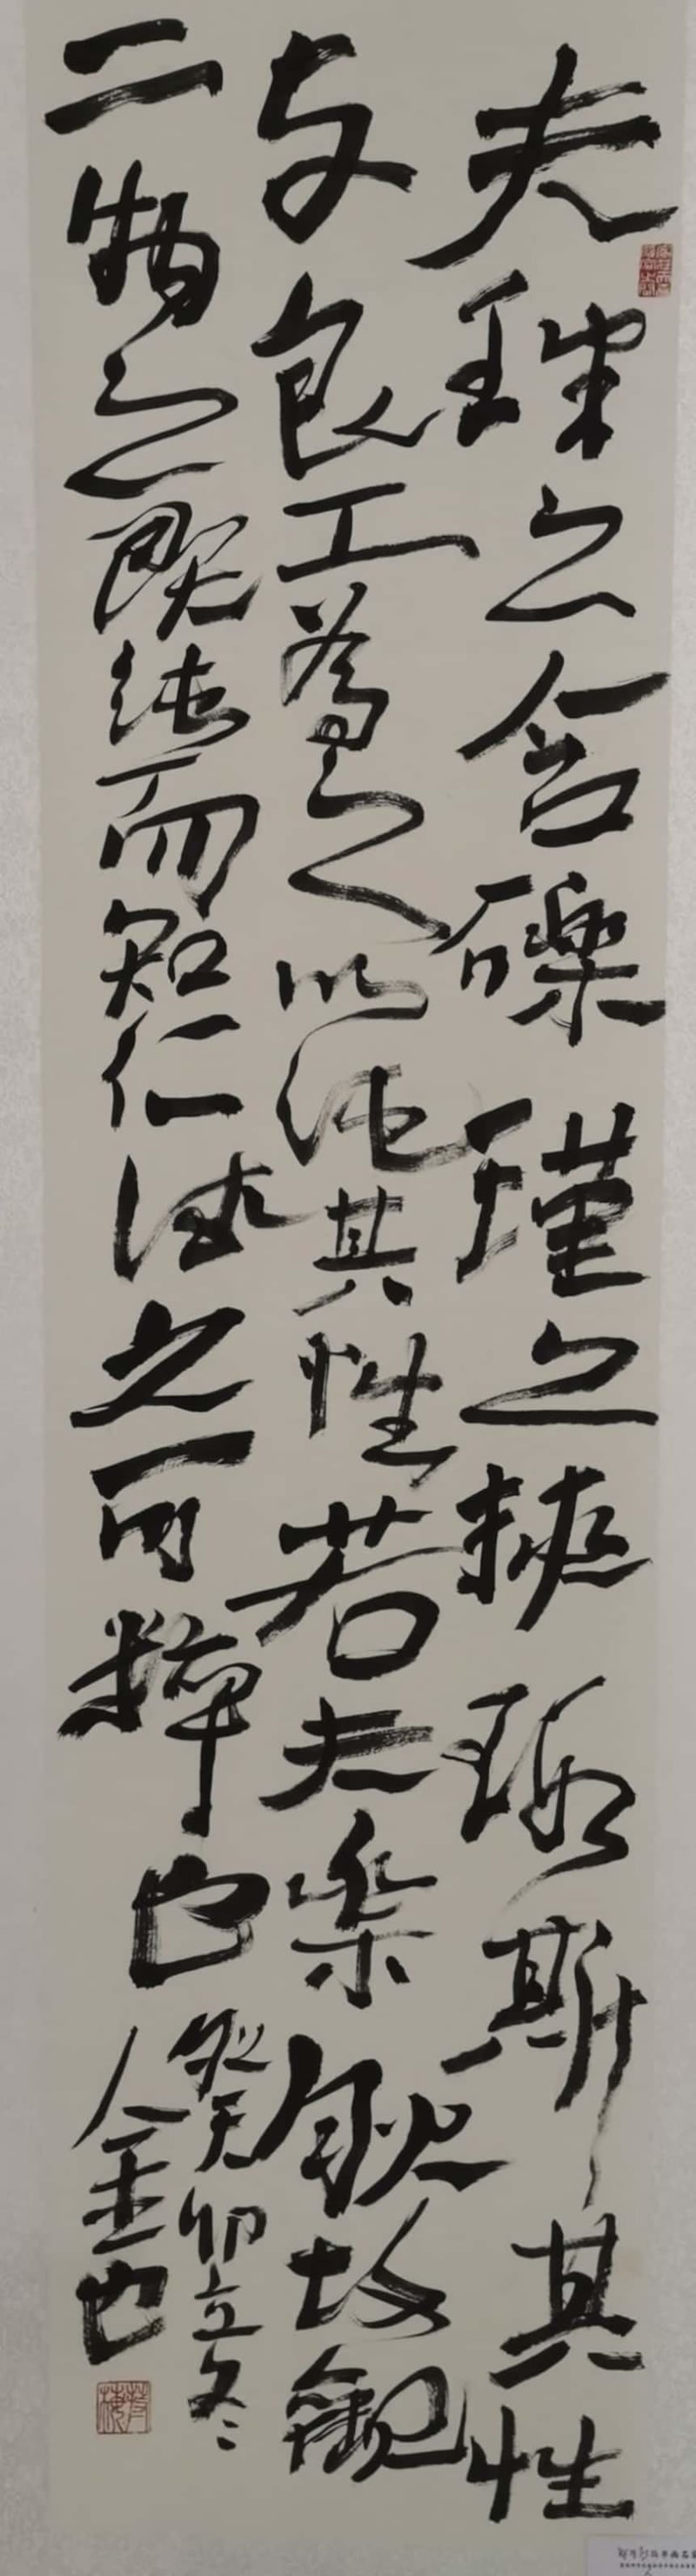 夫珠之含礫瑾之挾瑕斯其性
与良工為之以純其性若夫素然故觀
二物之既純而知仁德之可粹也
癸卯立冬
金也